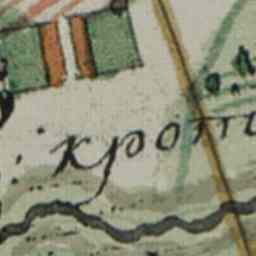 кропи